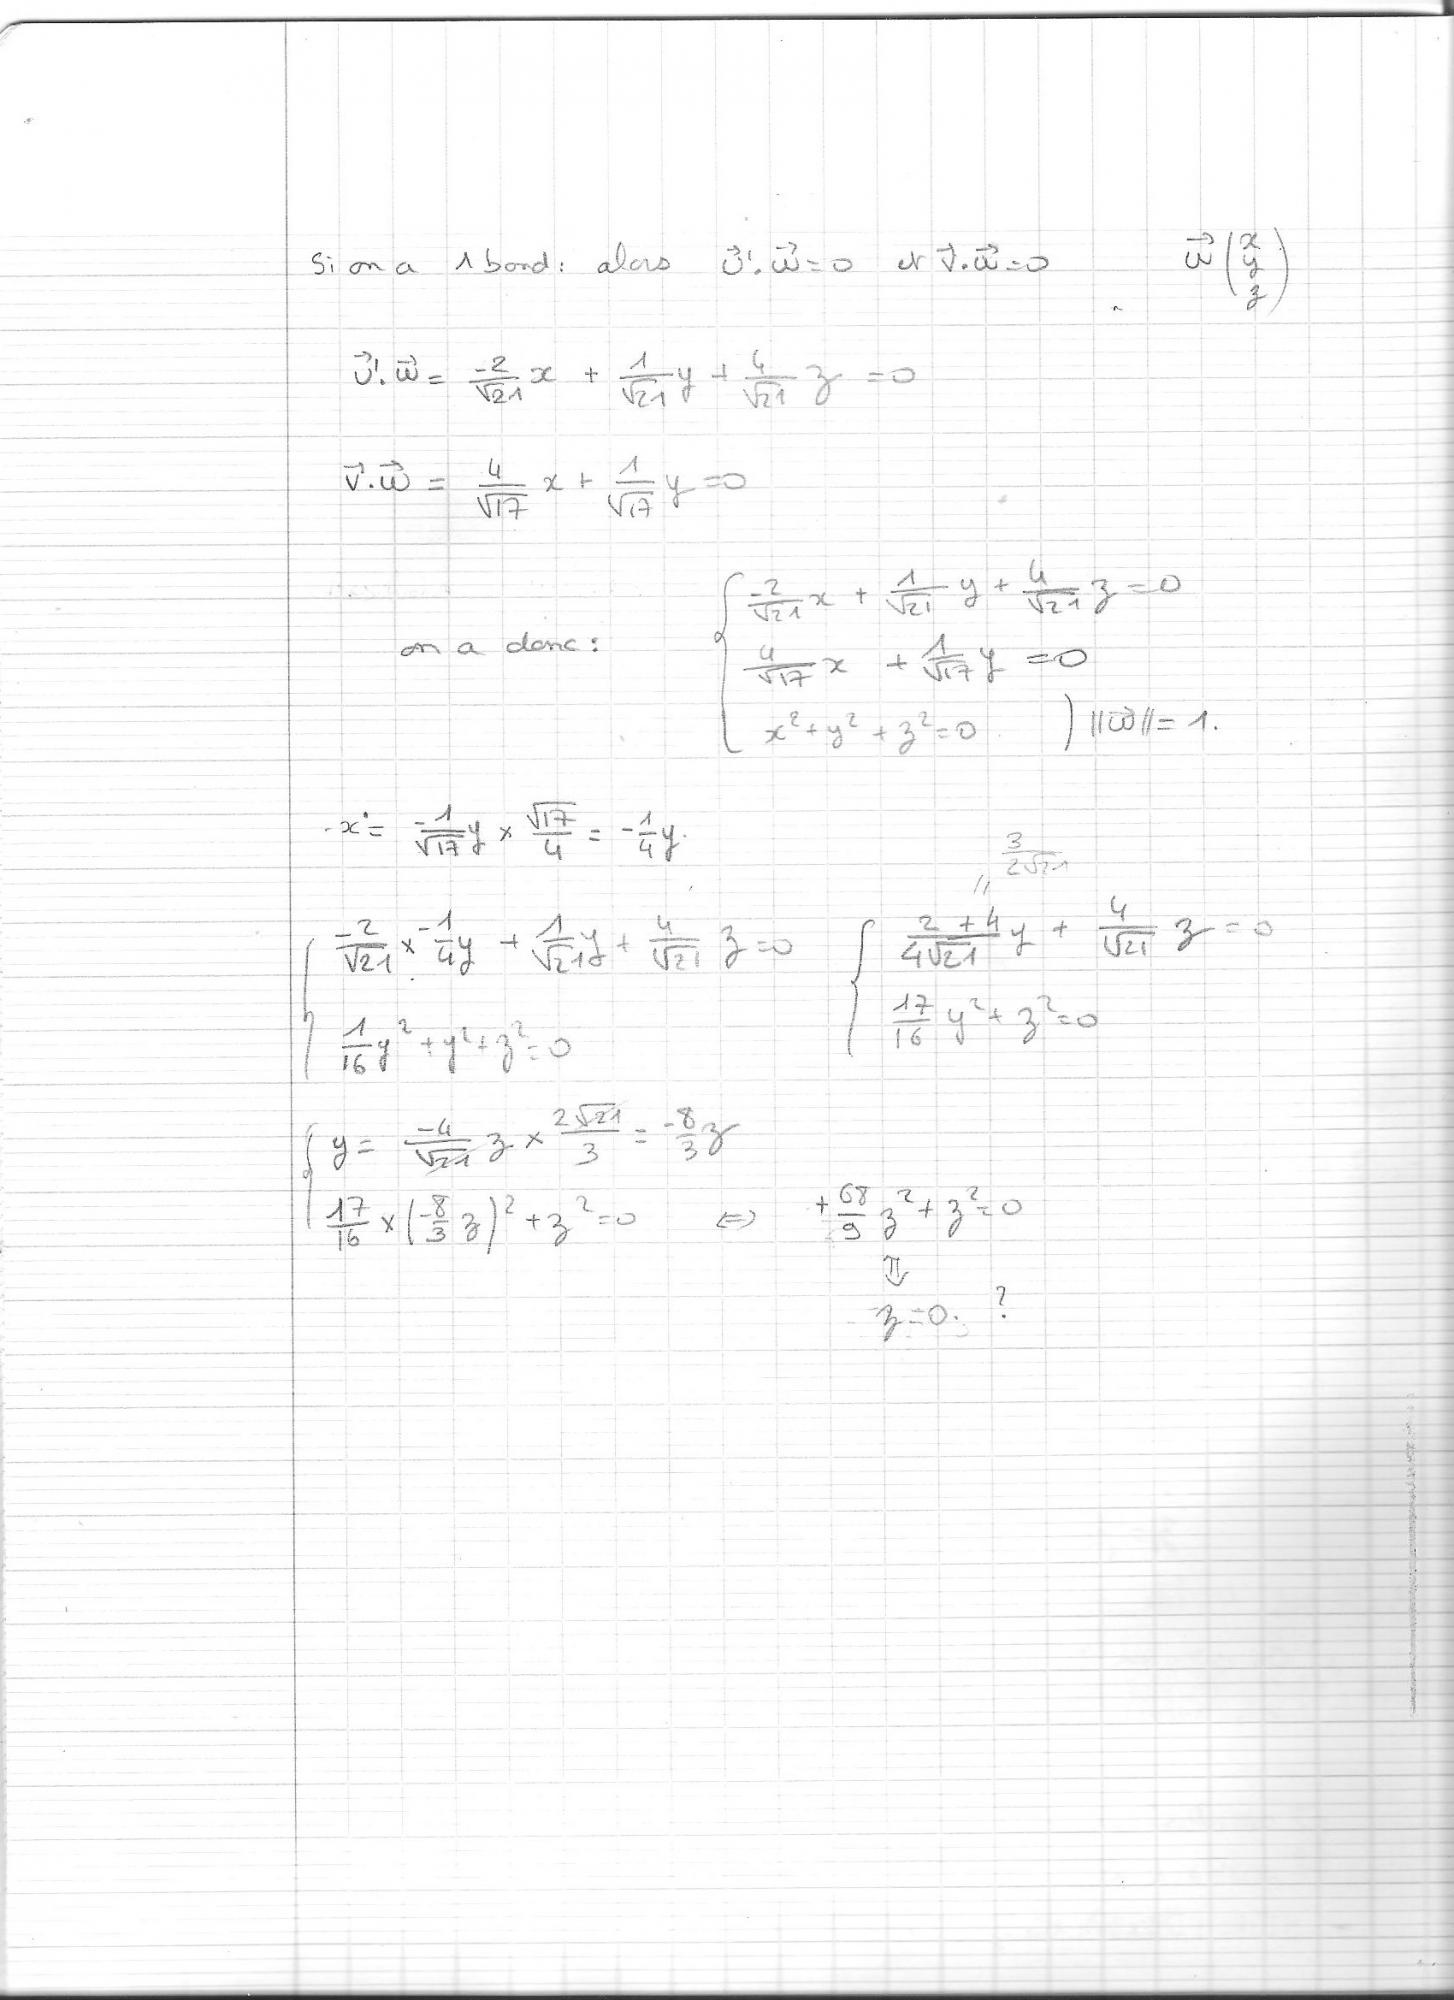 Si on a 1 bond: alors u⃗'.w⃗=0 et v⃗.w⃗=0 w⃗ (x y z)
u⃗'.w⃗ = -2/√21 x + 1/√21 y + 4/√21 z = 0
v⃗.w⃗ = 4/√17 x + 1/√17 y = 0
on a donc: { -2/√21 x + 1/√21 y + 4/√21 z = 0
4/√17 x + 1/√17 y = 0
x² + y² + z² = 0 ) ||w⃗|| = 1.
x = -1/√17 y × √17/4 = -1/4 y.
" 3/2√21
{ -2/√21 × -1/4 y + 1/√21 y + 4/√21 z = 0 { 2+4/4√21 y + 4/√21 z = 0
1/16 y² + y² + z² = 0 17/16 y² + z² = 0
{ y = -4/√21 z × 2√21/3 = -8/3 z
17/16 × (-8/3 z)² + z² = 0 ⇔ +68/9 z² + z² = 0
⇓
z = 0. ?